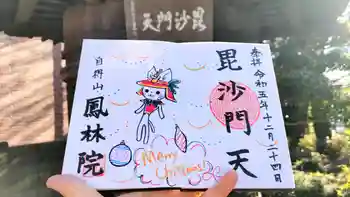 天門沙毘
奉拝 令和五年十二月二十四日
毘沙門天
自得山
鳳林院
Merry
Christmas!